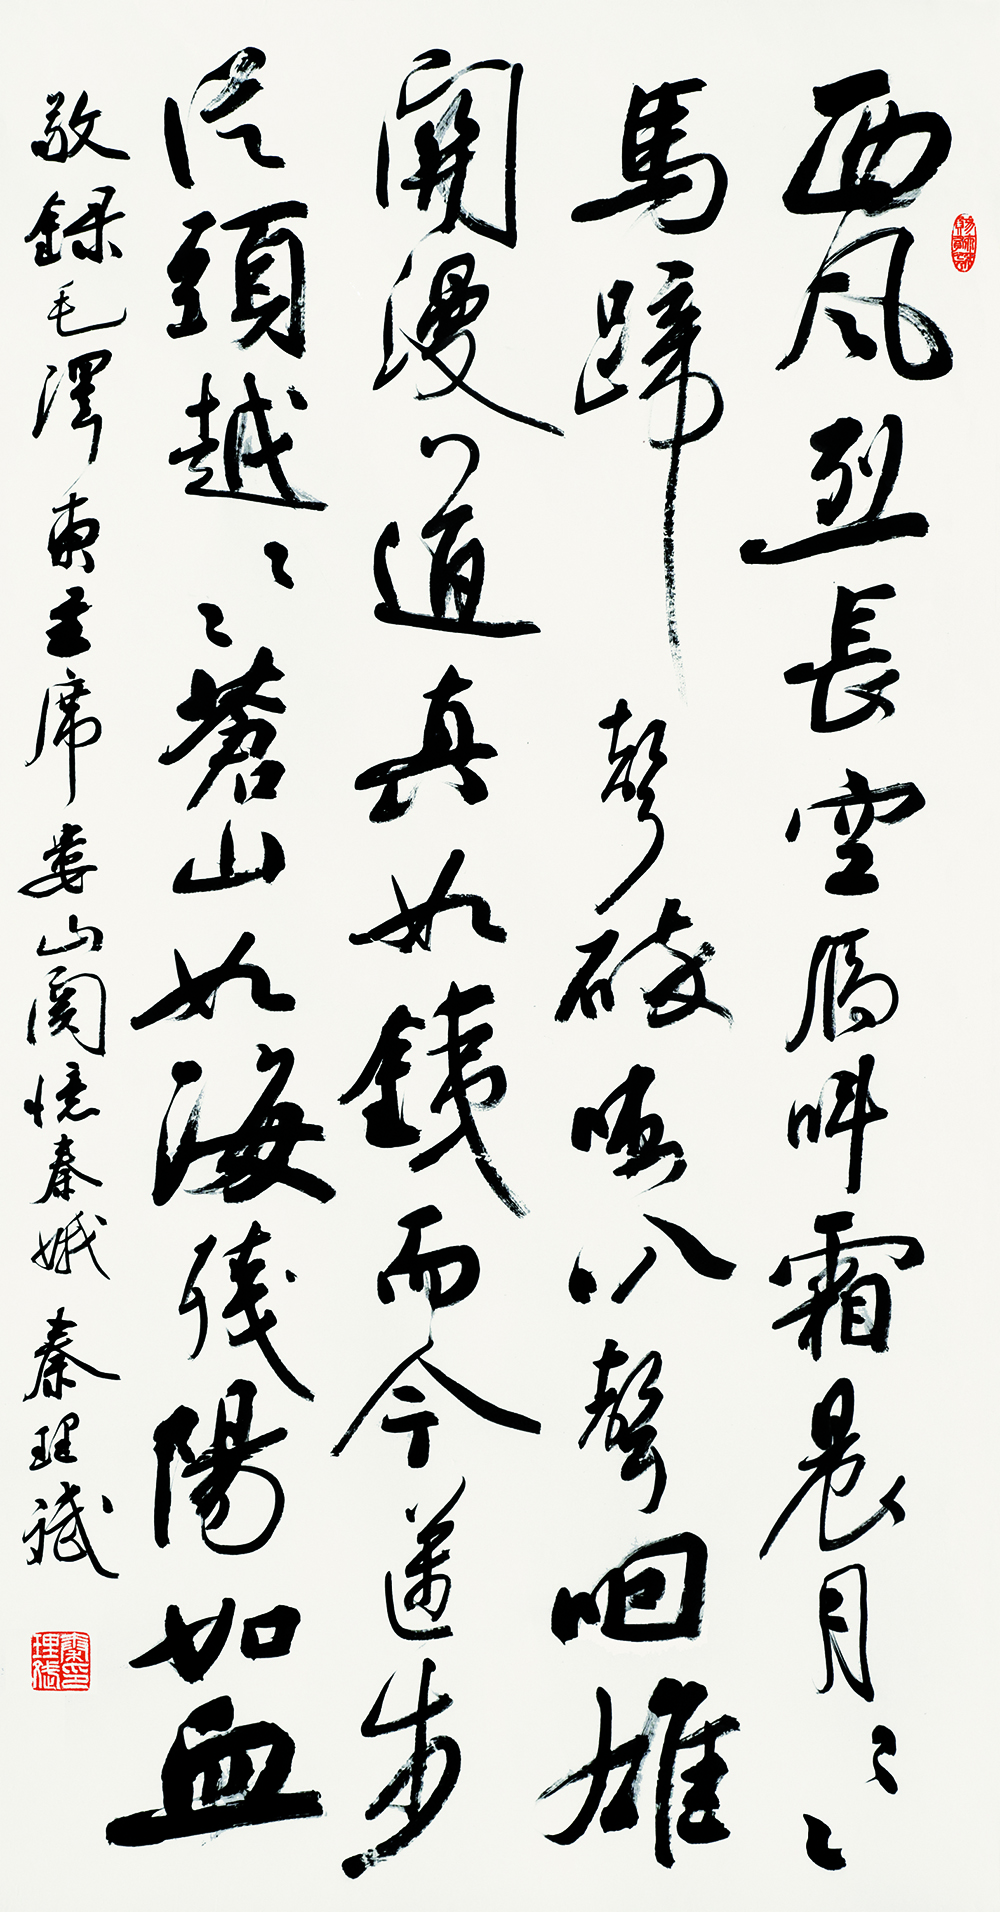 西風烈長空雁叫霜晨月〻〻
馬蹄聲碎喇叭聲咽雄
關漫〻道真如鐵而今邁步
從頭越〻〻蒼山如海殘陽如血
敬録毛澤東主席婁山關憶秦娥 秦理斌
秦印理斌